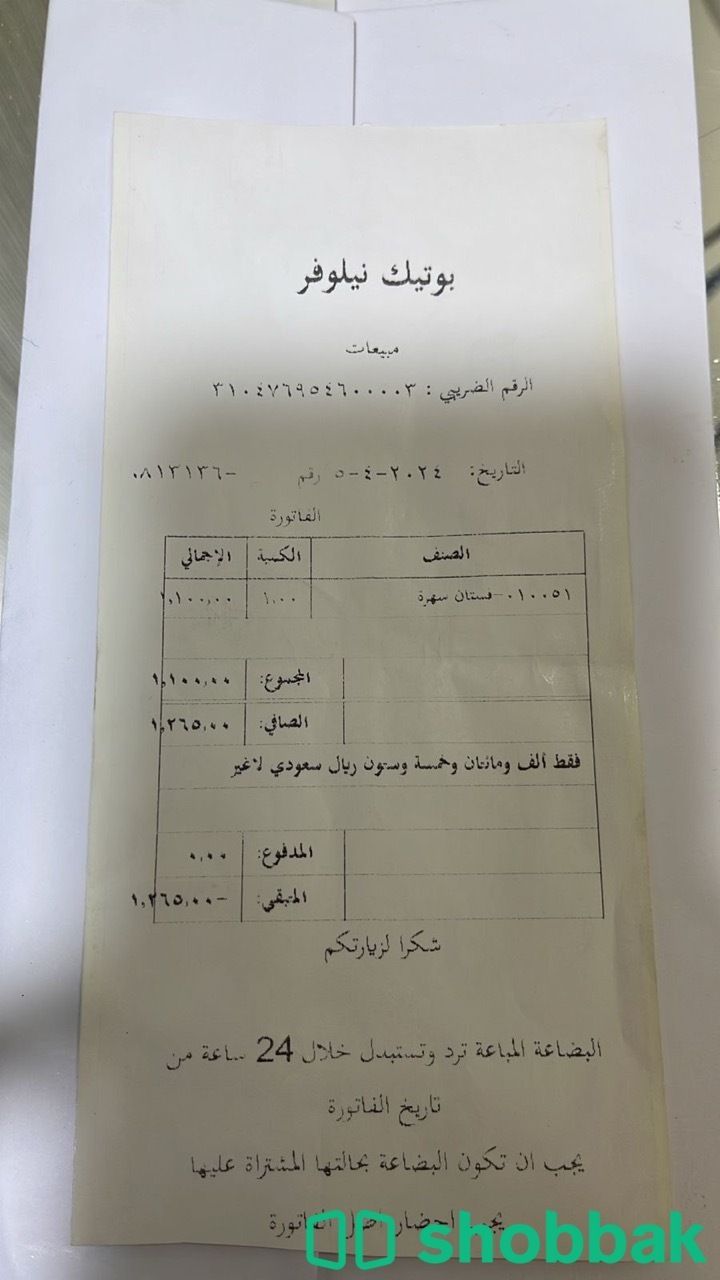 بوتيك نيلوفر
مبيعات
الرقم الضريبي : ٣١٠٤٧٦٩٥٤٦٠٠٠٠٣
التاريخ: ٢٠٢٤-٤-٥ رقم ٠٨١٣١٣٦-
الفاتورة
الصنف الكمية الإجمالي
٠١٠٠٥١-فستان سهرة ١,٠٠ ١,١٠٠,٠٠
المجموع: ١,١٠٠,٠٠
الصافي: ١,٢٦٥,٠٠
فقط ألف ومائتان وخمسة وستون ريال سعودي لاغير
المدفوع: ٠,٠٠
المتبقي: ١,٢٦٥,٠٠-
شكرا لزيارتكم
البضاعة المباعة ترد وتستبدل خلال 24 ساعة من
تاريخ الفاتورة
يجب ان تكون البضاعة بحالتها المشتراة عليها
يجب احضار اصل الفاتورة
shobbak